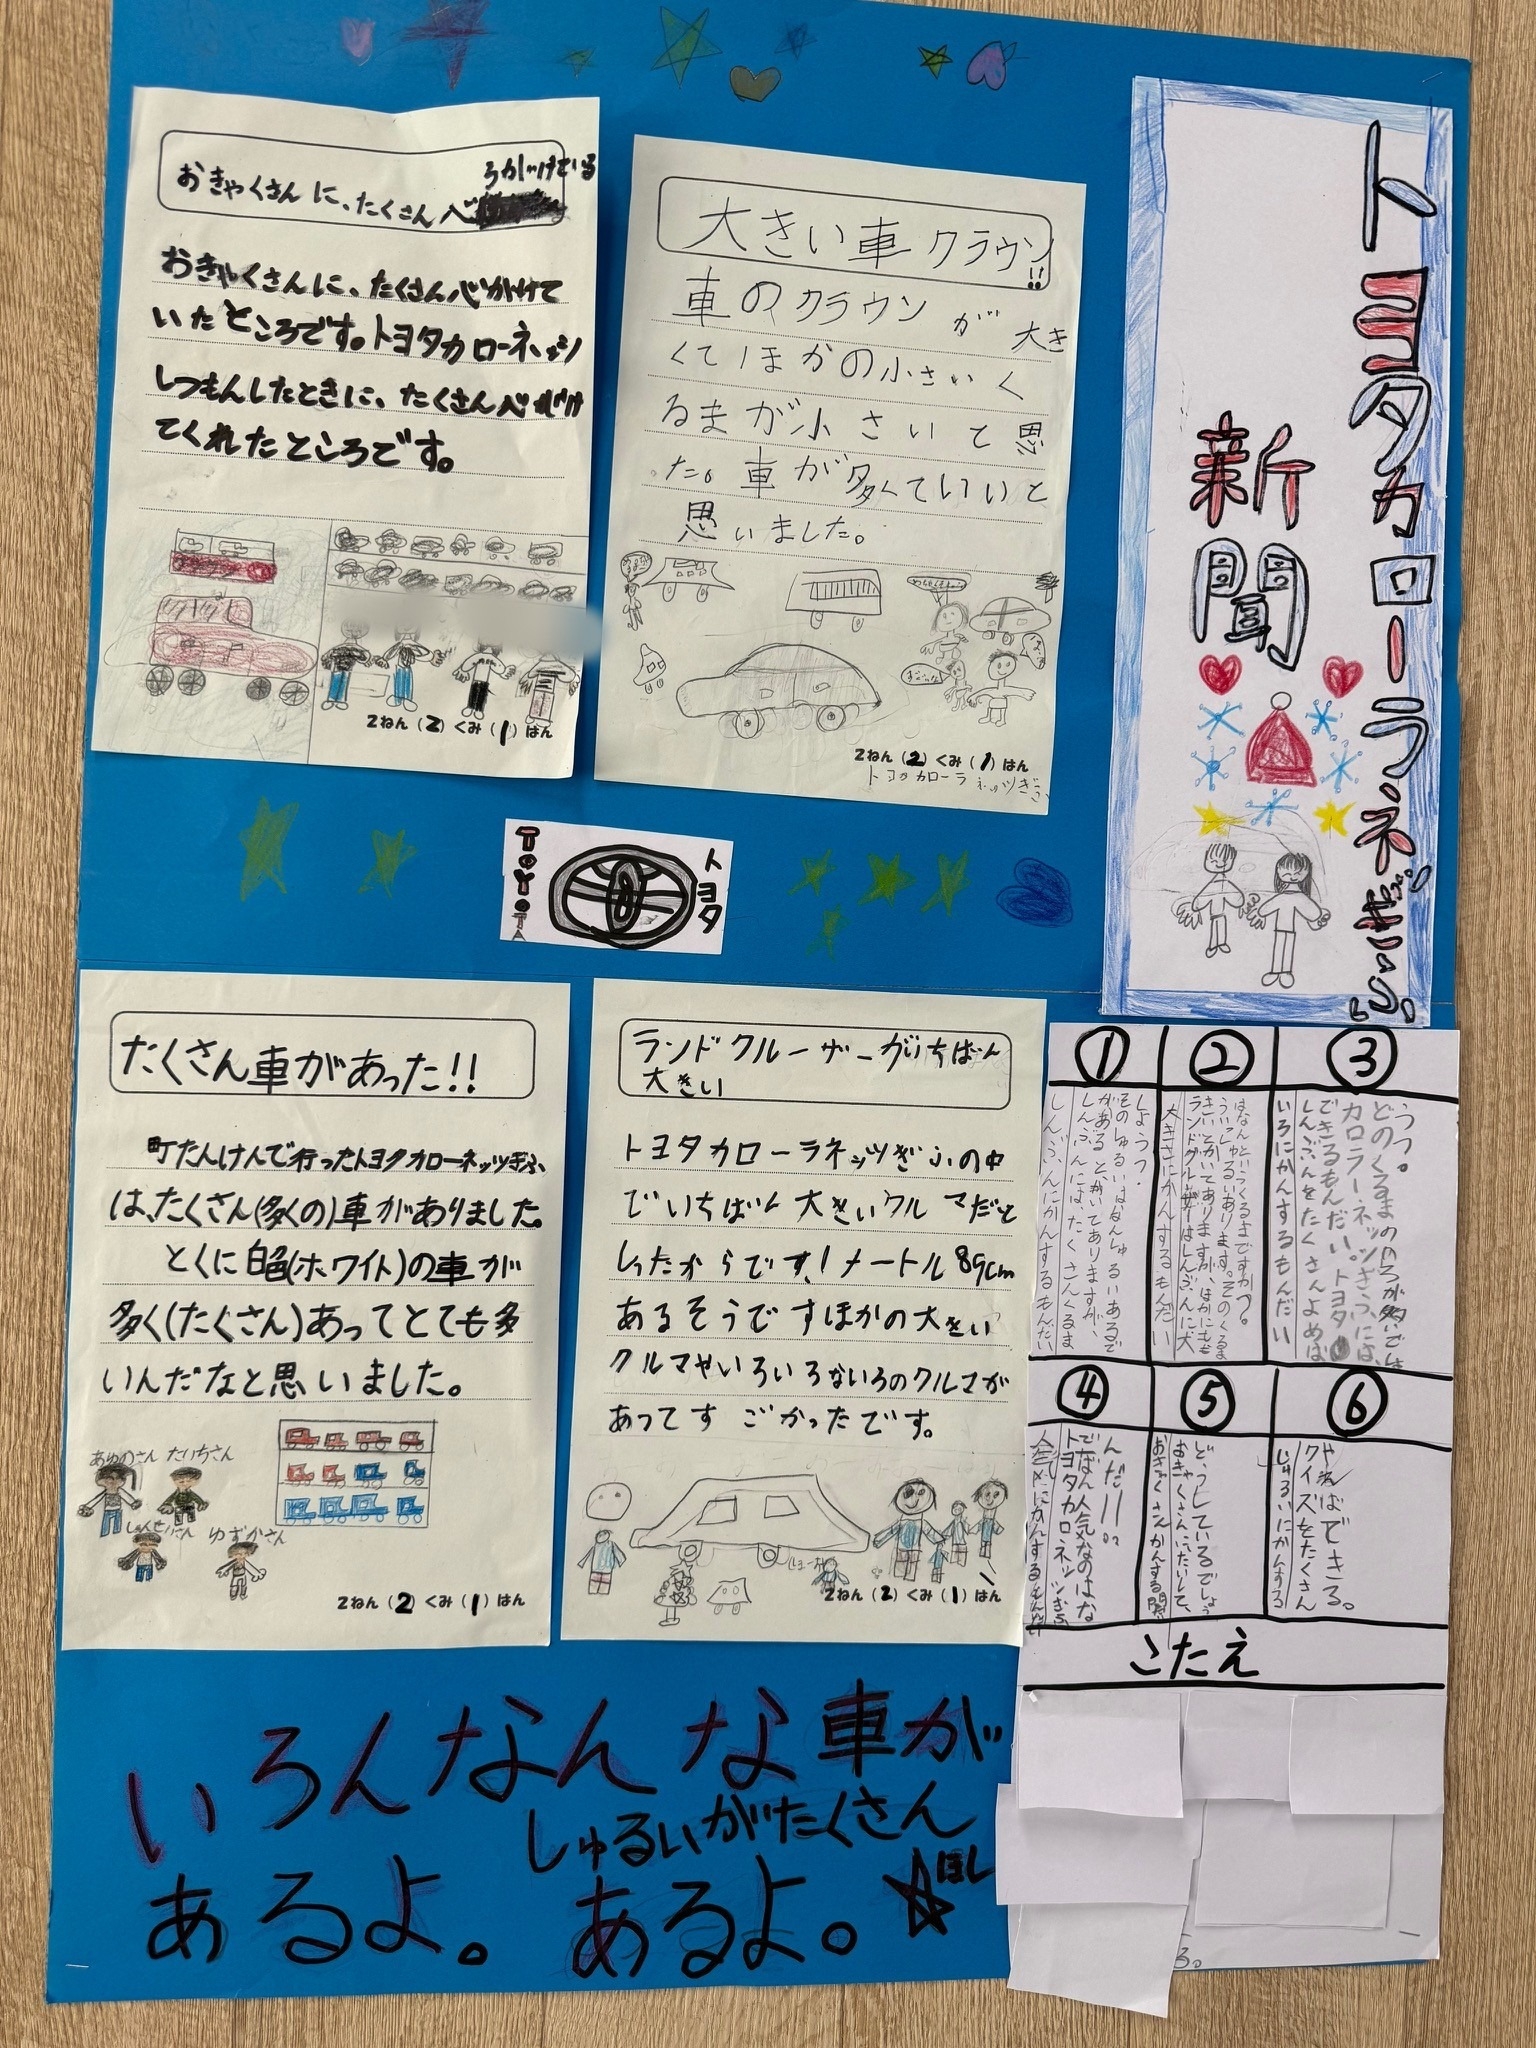 トヨタカローラネッツぎふ
新聞
おきゃくさんに、たくさん心
うがけている
おきゃくさんに、たくさん心がけて
いたところです。トヨタカローネッツ
しつもんしたときに、たくさん心がけ
てくれたところです。
2ねん(2)くみ(1)はん
大きい車クラウン!!
車のクラウンが大き
くてほかの小さいく
るまが小さいと思
た。車が多くていいと
思いました。
2ねん(2)くみ(1)はん
トヨタカローラネッツぎふ
TOYOTA
トヨタ
たくさん車があった!!
町たんけんで行ったトヨタカローネッツぎふ
は、たくさん(多くの)車がありました。
とくに白色(ホワイト)の車が
多く(たくさん)あってとても多
いんだなと思いました。
あゆのさん たいちさん
しゅんせいさん ゆずかさん
2ねん(2)くみ(1)はん
ランドクルーザーがいちばん
大きい
トヨタカローラネッツぎふの中
でいちばん大きいクルマだと
しったからです!メートル89cm
あるそうですほかの大きい
クルマやいろいろないろのクルマが
あってすごかったです。
2ねん(2)くみ(1)はん
①
しんぶんにかんするもんだい
しんぶんには、たくさんくるま
があるとかいてありますが、
そのしゅるいはなんしゅるいあるで
しょうっ。
②
大きさにかんするもんだい
ランドクルーザーはしんぶんに大
きいとかいてありますが、ほかにもど
ういうしゅるいあります。そのくるま
はなんというくるまですか?
③
いろにかんするもんだい
しんぶんをたくさんよめば
できるもんだい。トヨタ
カローラーネッツぎふには、
どのくるまのいろが多いでし
ょうっ。
④
人気にかんするもんだい
トヨタカローネッツぎふ
でばん人気なのはな
んだ!!
⑤
おきゃくさんかんする問
おきゃくさんにたいして、
どうしているでしょう
⑥
しゅるいにかんする
クイズをたくさん
やればできる。
こたえ
いろんなんな車が
あるよ。
しゅるいがたくさん
あるよ。
ほし
る。